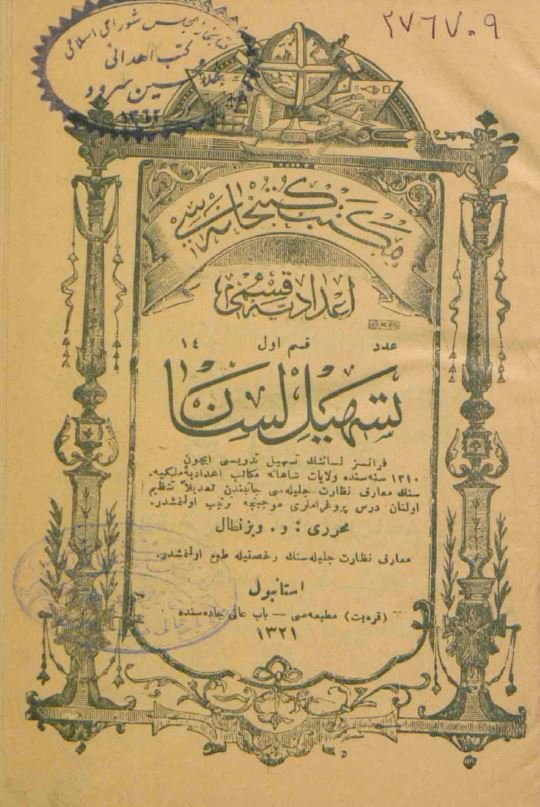 ۲۷۶۷۰۹
کتابخانه مجلس شورای اسلامی
کتب اهدائی
حسین سرود
مکتب کتبخانه‌سی
اعدادیه قسمی
عدد قسم اول ١٤
تسهیل لسان
فرانسز لسانڭ تسهیل تدریسی ایچون
١٣١٠ سنه‌سنده ولایات شاهانه مکاتب اعدادیهٔ ملکیه‌
سنك معارف نظارت جلیله‌سی جانبندن تعدیلاً تنظیم
اولنان درس پروغراملری موجبنجه ترتیب اولنمشدر.
محرری : و. ویزنطال
معارف نظارت جلیله‌سنك رخصتیله طبع اولنمشدر.
استانبول
(قره‌بت) مطبعه‌سی — باب عالی جاده‌سنده
١٣٢١